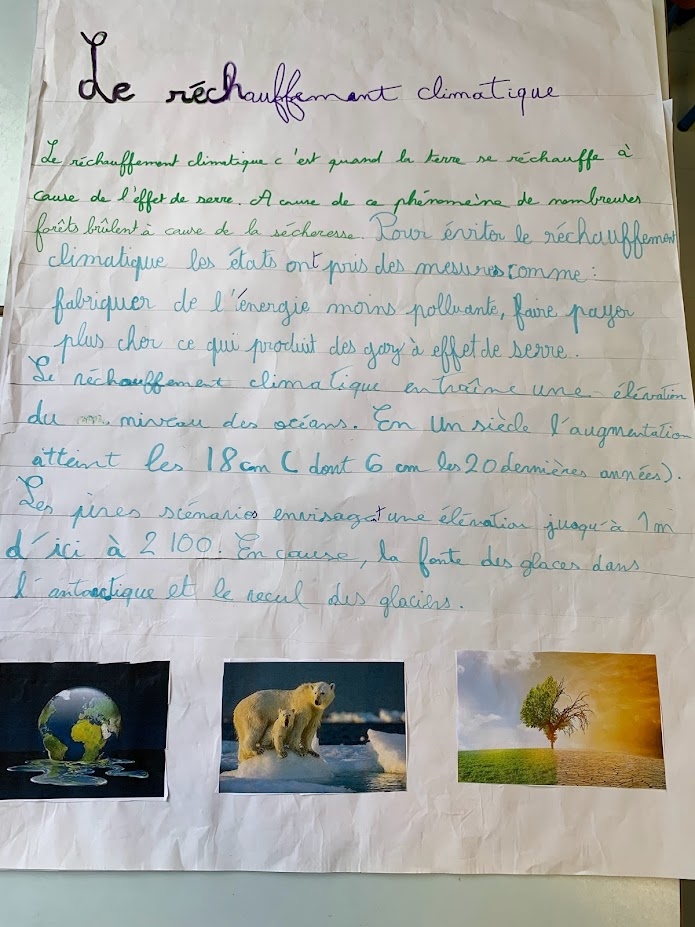 Le réchauffement climatique
Le réchauffement climatique c'est quand la terre se réchauffe à
cause de l'effet de serre. A cause de ce phénomeine de nombreuses
forêts brûlent à cause de la sécheresse. Pour éviter le réchauffement
climatique les états ont pris des mesures comme :
fabriquer de l'énergie moins polluante, faire payer
plus cher ce qui produit des gaz à effet de serre.
Le réchauffement climatique entraîne une élévation
du niveau des océans. En un siècle l'augmentation
atteint les 18 cm ( dont 6 cm les 20 dernières années).
Les pires scénarios envisagent une élévation jusqu'à 1m
d'ici à 2 100. En cause, la fonte des glaces dans
l'antarctique et le recul des glaciers.